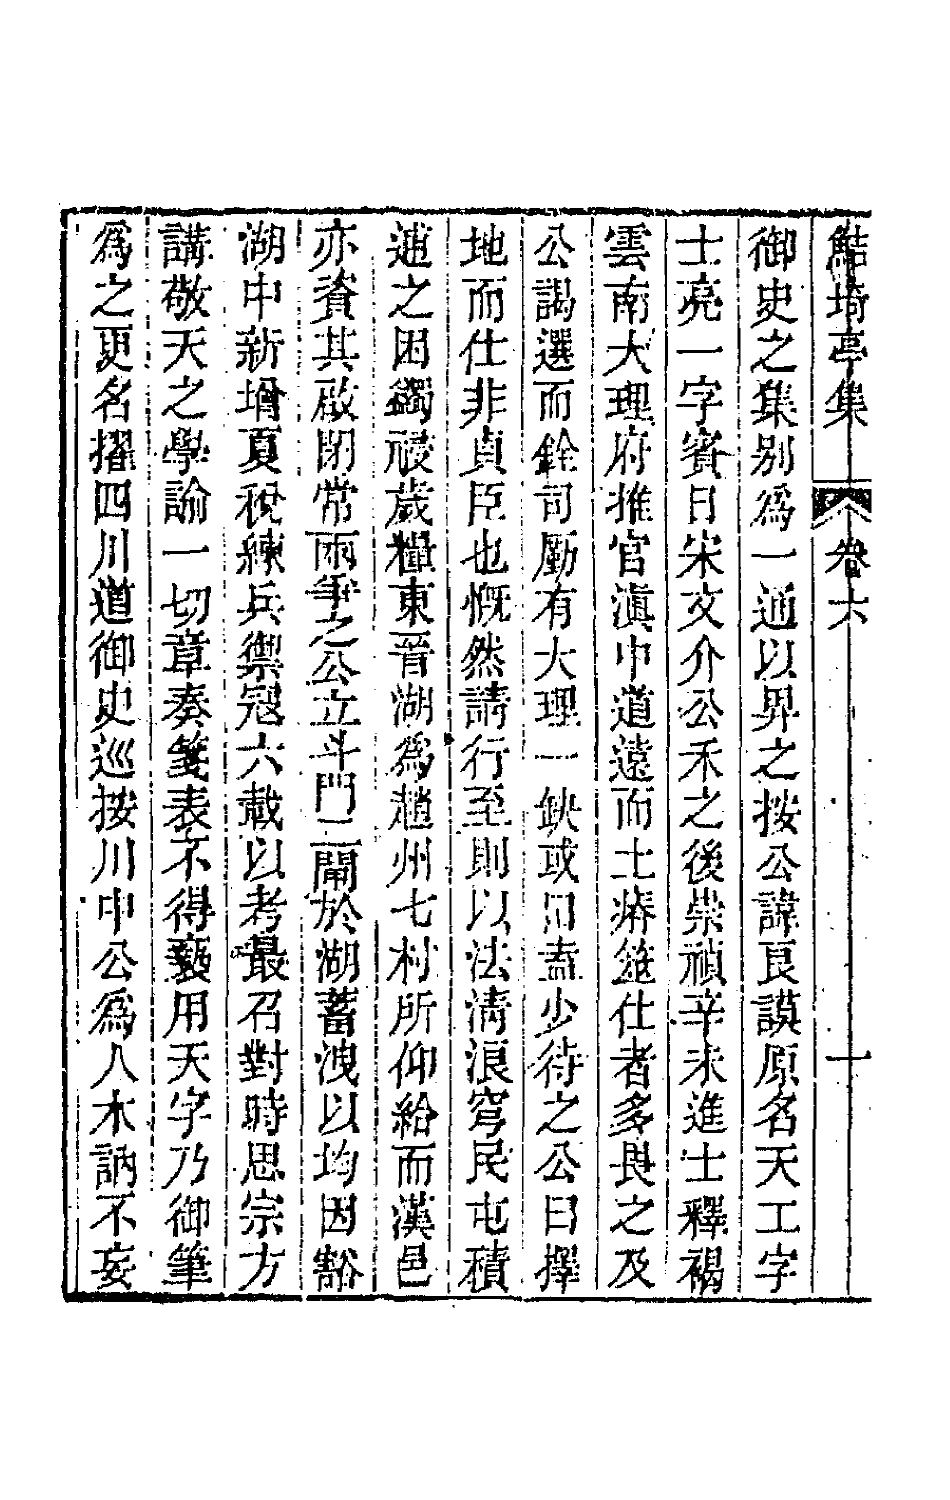 鮚埼亭集 卷六 十
御史之集别為一通以畀之按公諱良謨原名天工字
士亮一字賓日宋文介公禾之後崇禎辛未進士釋褐
雲南大理府推官滇中道遠而土瘠筮仕者多畏之及
公謁選而銓司勵有大理一缺或曰盍少待之公曰擇
地而仕非貞臣也慨然請行至則以法清浪穹民屯積
逋之困蠲祲歲糧東晉湖為趙州七村所仰給而漢邑
亦資其啟閉常兩爭之公立斗門二閘於湖蓄洩以均因豁
湖中新增夏稅練兵禦寇六載以考最召對時思宗方
講敬天之學諭一切章奏箋表不得褻用天字乃御筆
為之更名擢四川道御史巡按川中公為人木訥不妄